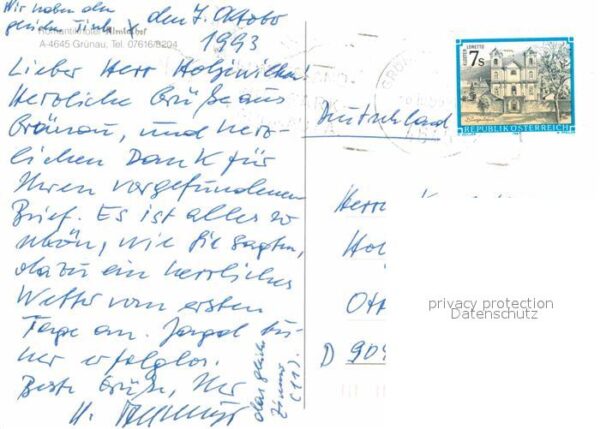 Wir haben den
gleichen Tisch
den 7. Oktober
1993
Romantikhotel Almtalhof
A-4645 Grünau, Tel. 07616/8204
Lieber Herr
Herzliche Grüße aus
Grünau, und herz-
lichen Dank für
Ihren vorgefundenen
Brief. Es ist alles so
schön, wie Sie sagten,
dazu ein herrliches
Wetter vom ersten
Tage an. Jagd bis-
her erfolglos.
Beste Grüße, Ihr
H.
das gleiche
Zimmer
(11).
LORETTO
7 S
Burgenland
REPUBLIK ÖSTERREICH
Deutschland
Herrn
Ott
D 904
privacy protection
Datenschutz